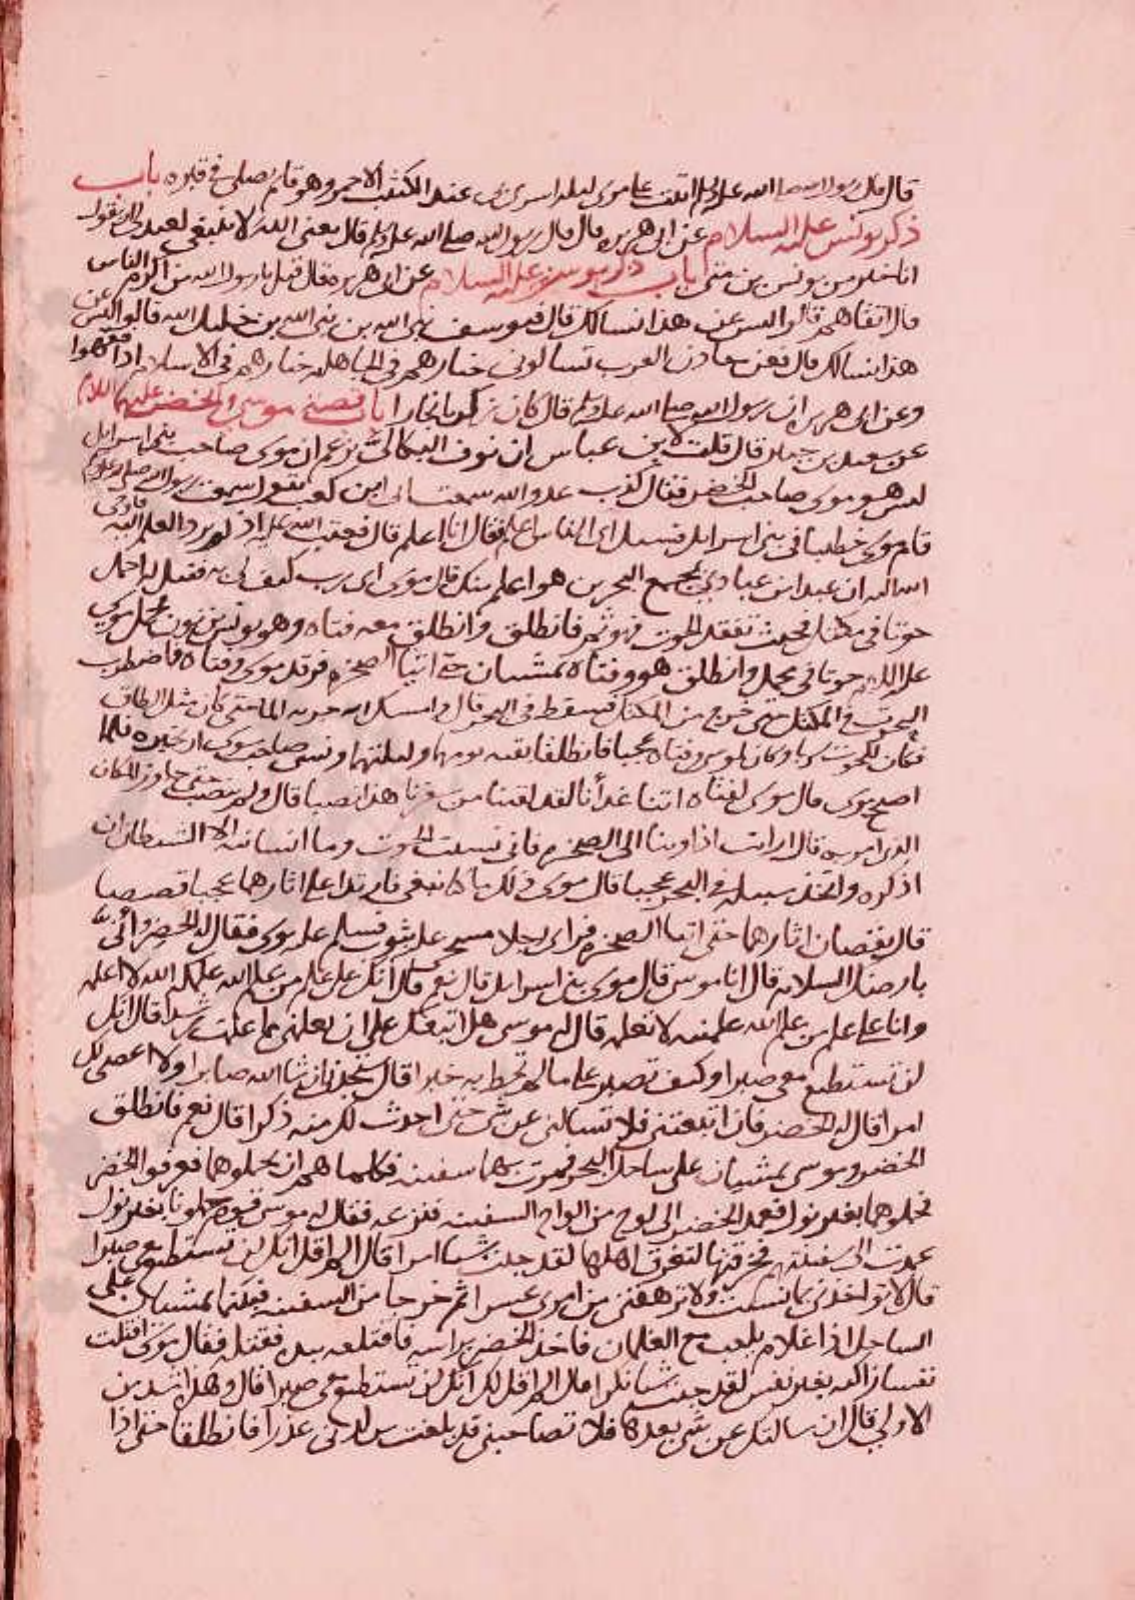 قال قال رسول الله صلى الله عليه وسلم اتيت على موسى ليلة اسري بي عند الكثيب الاحمر وهو قائم يصلي في قبره باب
ذكر يونس عليه السلام عن ابي هريرة قال قال رسول الله صلى الله عليه وسلم قال يعني الله لا ينبغي لعبد لي ان يقول
انا خير من يونس بن متى باب ذكر يوسف عليه السلام عن ابي هريرة قال قيل يا رسول الله من اكرم الناس
قال اتقاهم قالوا ليس عن هذا نسالك قال فيوسف نبي الله بن نبي الله بن خليل الله قالوا ليس عن
هذا نسالك قال فعن معادن العرب تسالوني خيارهم في الجاهلية خيارهم في الاسلام اذا فقهوا
وعن ابي هريرة ان رسول الله صلى الله عليه وسلم قال كان زكريا نجارا باب قصة موسى والخضر عليهما السلام
عن سعيد بن جبير قال قلت لابن عباس ان نوف البكالي يزعم ان موسى صاحب بني اسرائيل
ليس هو موسى صاحب الخضر فقال كذب عدو الله سمعت ابي ابن كعب يقول سمعت رسول الله صلى الله عليه وسلم يقول
قام موسى خطيبا في بني اسرائيل فسئل اي الناس اعلم فقال انا اعلم قال فعتب الله عليه اذ لم يرد العلم اليه فاوحى
الله اليه ان عبدا من عبادي بمجمع البحرين هو اعلم منك قال موسى اي رب كيف لي به فقيل له احمل
حوتا في مكتل فحيث تفقد الحوت فهو ثم فانطلق وانطلق معه فتاه وهو يوشع بن نون فحمل موسى
عليه السلام حوتا في مكتل وانطلق هو وفتاه يمشيان حتى اتيا الصخرة فرقد موسى وفتاه فاضطرب
الحوت في المكتل حتى خرج من المكتل فسقط في البحر قال وامسك الله جرية الما حتى كان مثل الطاق
فكان للحوت سربا وكان لموسى وفتاه عجبا فانطلقا بقية يومهما وليلتهما ونسي صاحب موسى ان يخبره فلما
اصبح موسى قال موسى لفتاه اتنا غدأنا لقد لقينا من سفرنا هذا نصبا قال ولم ينصب حتى جاوز المكان
الذي امر به قال ارايت اذ اوينا الى الصخرة فاني نسيت الحوت وما انسانيه الا الشيطان ان
اذكره واتخذ سبيله في البحر عجبا قال موسى ذلك ما كنا نبغي فارتدا على اثارهما عجبا قصصا
قال يقصان اثارهما حتى اتيا الصخرة فراى رجلا مسجى عليه ثوب فسلم عليه موسى فقال له الخضر وأنى
بارضك السلام قال انا موسى قال موسى بني اسرايل قال نعم قال انك على علم من علم الله علمكه الله لا اعلمه
وانا على علم من علم الله علمنيه لا تعلمه قال له موسى هل اتبعك على ان تعلمني مما علمت رشدا قال انك
لن تستطيع معي صبرا وكيف تصبر على ما لم تحط به خبرا قال ستجدني ان شا الله صابرا ولا اعصي لك
امرا قال له الخضر فان اتبعتني فلا تسالني عن شي حتى احدث لك منه ذكرا قال نعم فانطلق
الخضر وموسى يمشيان على ساحل البحر فمرت بهما سفينة فكلماهم ان يحملوهما فعرفوا الخضر
فحملوهما بغير نول فعمد الخضر الى لوح من الواح السفينة فنزعه فقال له موسى قوم حملونا بغير نول
عمدت الى سفينتهم فخرقتها لتغرق اهلها لقد جئت شيا امرا قال الم اقل انك لن تستطيع معي صبرا
قال لا تواخذني بما نسيت ولا ترهقني من امري عسرا ثم خرجا من السفينة فبينما يمشيان على
الساحل اذا غلام يلعب مع الغلمان فاخذ الخضر براسه فاقتلعه بيده فقتله فقال موسى اقتلت
نفسا زاكية بغير نفس لقد جئت شيا نكرا قال الم اقل لك انك لن تستطيع معي صبرا قال وهذا اشد من
الاولى قال ان سالتك عن شي بعدها فلا تصاحبني قد بلغت من لدني عذرا فانطلقا حتى اذا